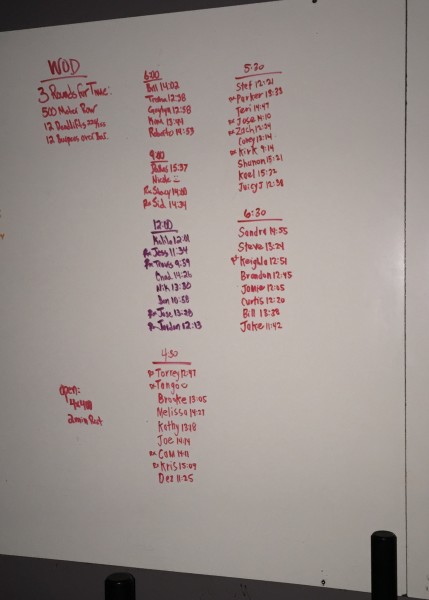 WOD
3 Rounds for Time:
500 Meter Row
12 Deadlifts
12 Burpees over Bar
6:00
Bill 14:02
12:38
12:58
13:44
Roberto 14:53
9:00
15:37
Nicole -
Rx Stacy 14:00
Rx Sid 14:34
12:00
Kalila 12:11
Rx Jess 11:34
Rx Travis 9:59
Chad 14:26
Nik 13:30
Dan 10:58
Rx Jose 13:28
Rx Jordan 12:13
4:30
Rx Torrey 12:47
Rx Tango
Brooke 13:05
Melissa 14:27
Kathy 13:18
Joe 14:14
Rx Cam 14:11
Rx Kris 15:09
Dez 11:25
5:30
Stef 12:21
Rx Parker 13:33
Teri 14:47
Rx Jose 14:10
Rx Zach 12:24
Corey 12:14
Rx Kirk 9:14
Shanon 15:21
Kael 15:32
Juicy J 12:38
6:30
Sandra 14:55
Steve 13:24
Keighla 12:51
Brandon 12:45
Jamie 12:05
Curtis 12:20
Bill 13:38
Jake 11:42
Open:
4x400
2 min Rest